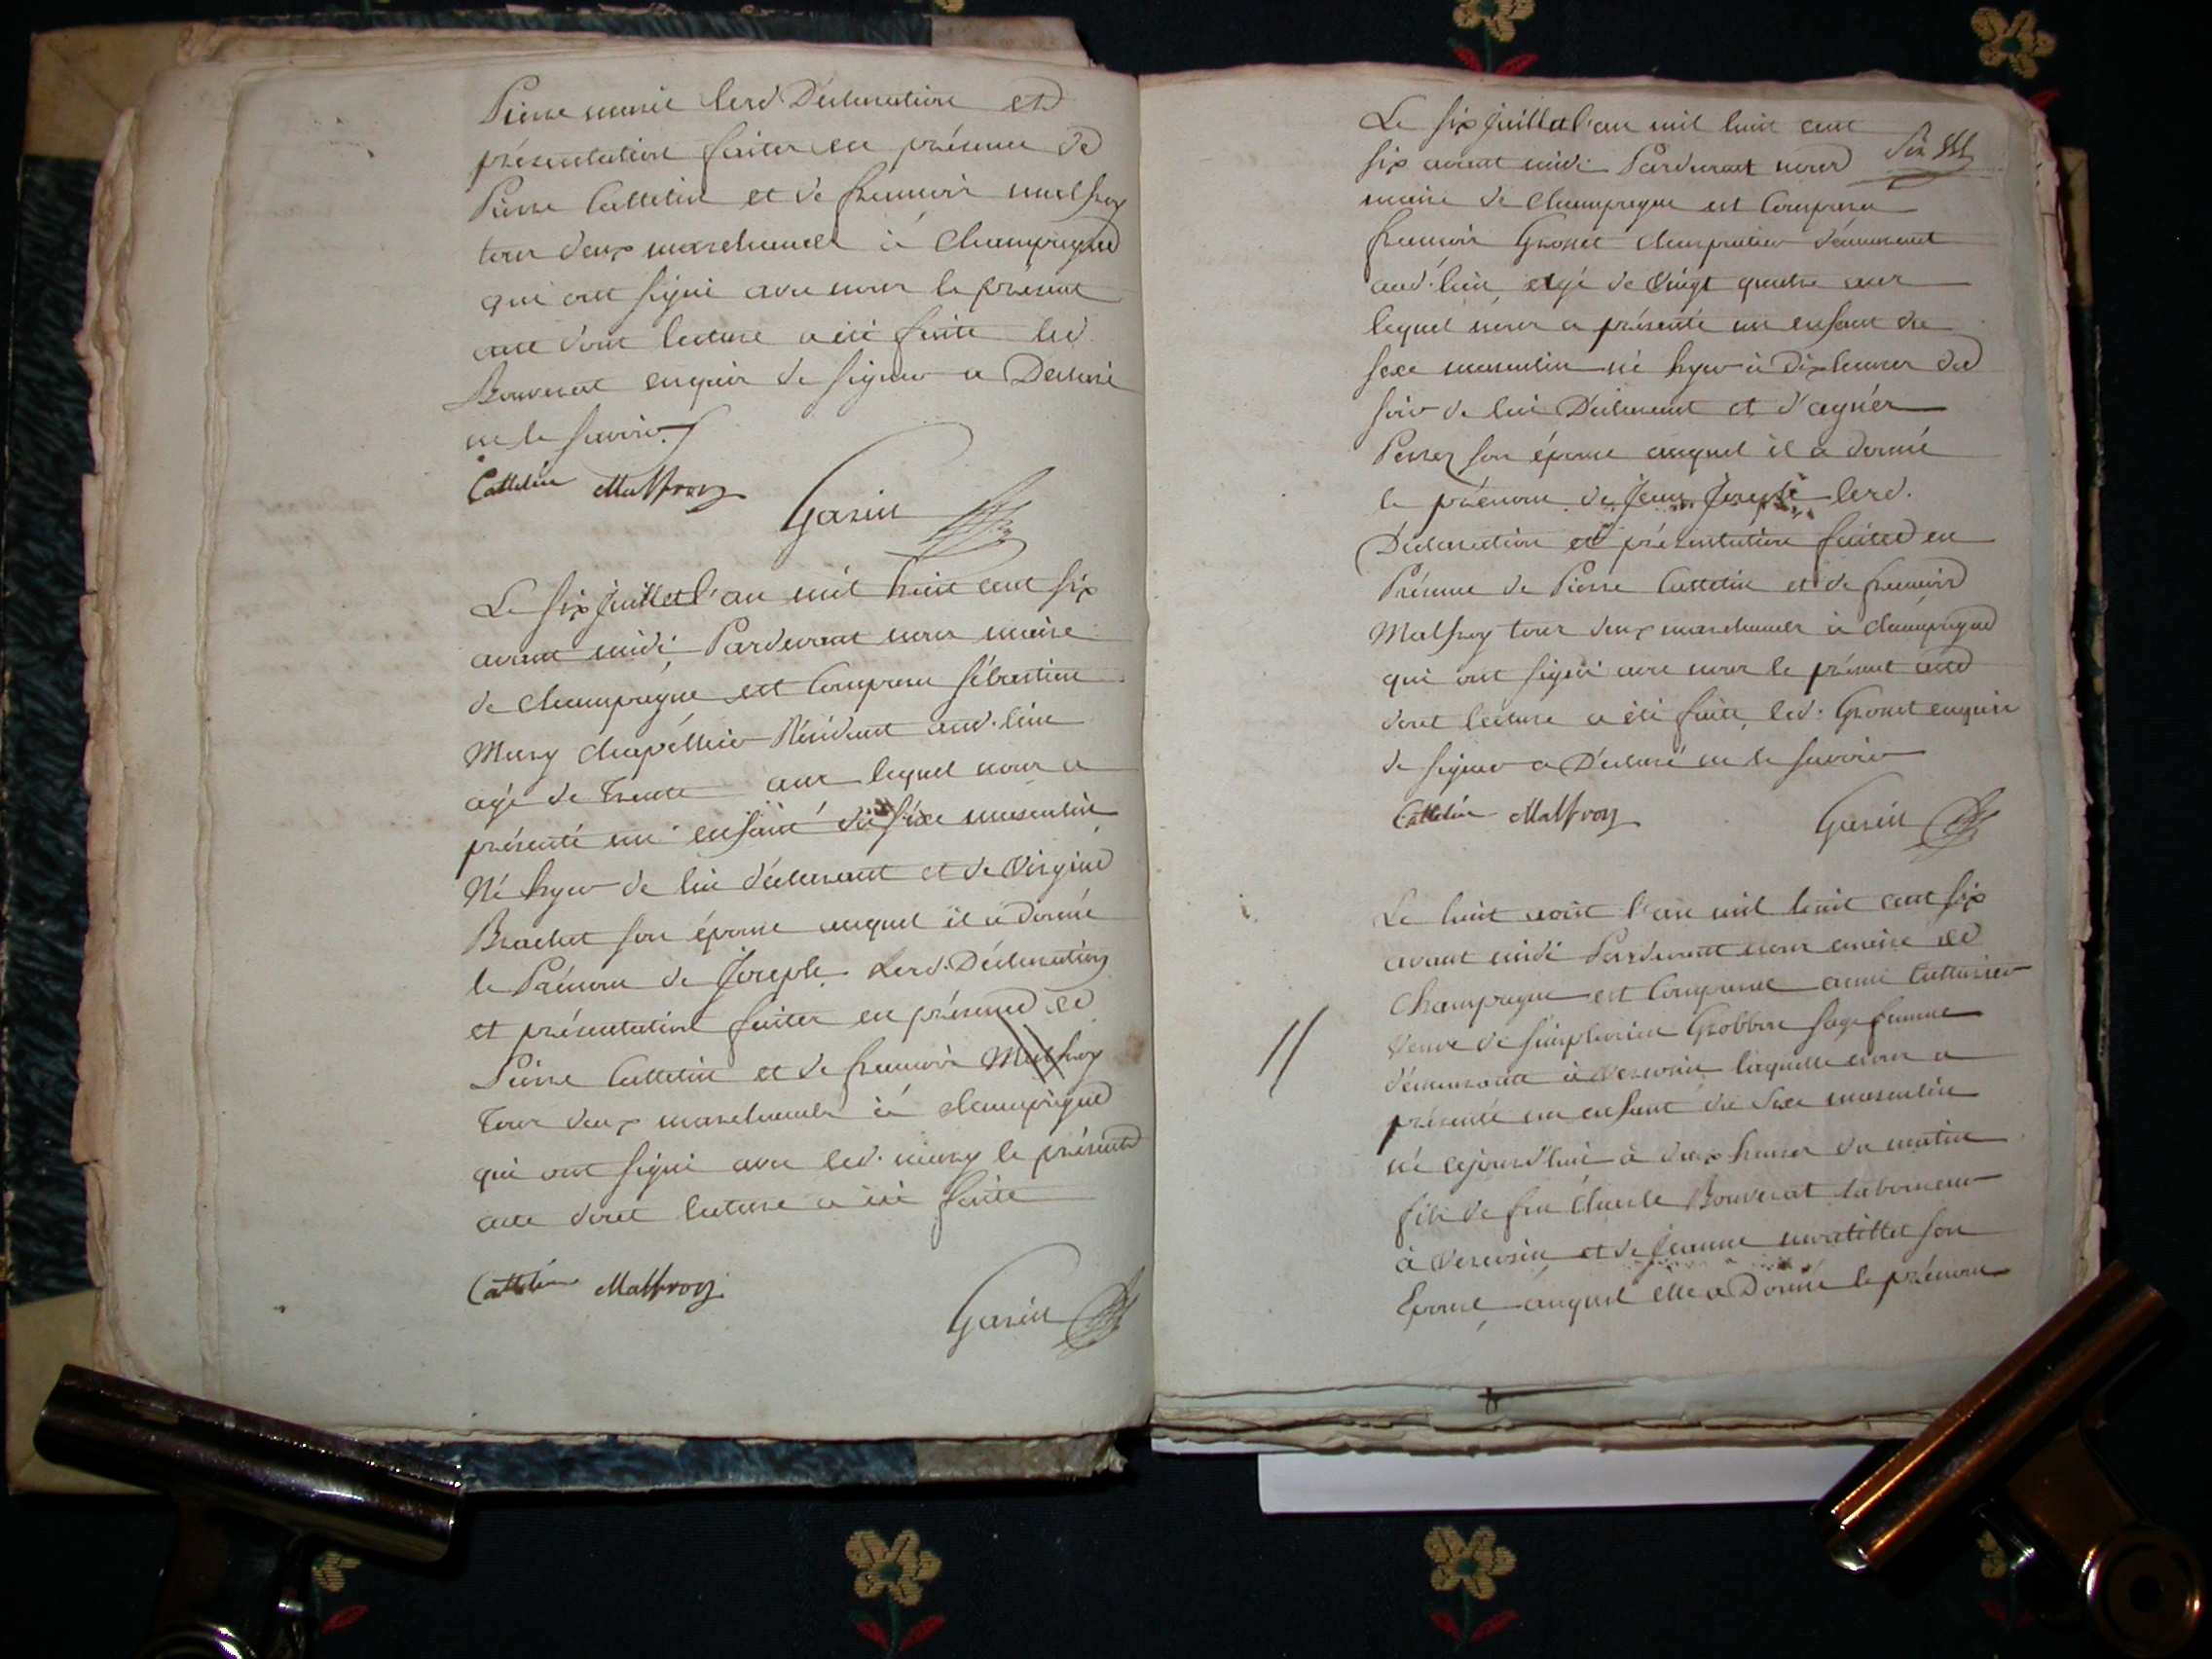 Pierre marie lesd. Déclaration et
présentation faites en présence de
Pierre Cattelin et de françois malfroy
tous deux marchands à Champagne
qui ont signé avec nous le présent
acte dont lecture a été faite led.
Bouverat enquis de signer a Déclaré
ne le savoir.
Cattelin Malfroy
Garin
Le six juillet l'an mil huit cent six
avant midi, Pardevant nous maire
de Champagne est Comparu sébastien
Musy chapellier Résidant aud. lieu
agé de trente ans lequel nous a
présenté un enfant du sexe masculin
Né hyer de lui déclarant et de Virginie
Brachet son épouse auquel il a donné
le Prénom de Joseph. Lesd. Déclaration
et présentation faites en présence de
Pierre Cattelin et de françois Malfroy
Tous deux marchands à champagne
qui ont signé avec led. musy le présent
acte dont lecture a été faite
Cattelin Malfroy
Garin
Le six juillet l'an mil huit cent
six avant midi Pardevant nous
maire de Champagne est Comparu
françois Gronet charpentier démeurant
aud. lieu, agé de vingt quatre ans
lequel nous a présenté un enfant du
sexe masculin né hyer à dix heures du
soir de lui Déclarant et d'agnés
son épouse auquel il a donné
le prénom de Jean Joseph lesd.
Déclaration et présentation faites en
Présence de Pierre Cattelin et de françois
Malfroy tous deux marchands à champagne
qui ont signé avec nous le présent acte
dont lecture a été faite, led. Gronet enquis
de signer a Déclaré ne le savoir
Cattelin Malfroy
Garin
Le huit août l'an mil huit cent six
avant midi Pardevant nous maire de
Champagne est Comparue anne
veuve de simphorien Grobbon sage femme
démeurante à laquelle nous a
présenté un enfant du Sexe masculin
né cejourd'hui à deux heures du matin
fils de feu Claude Bouverat laboureur
à et de Jeanne son
Epouse, auquel elle a Donné le prénom